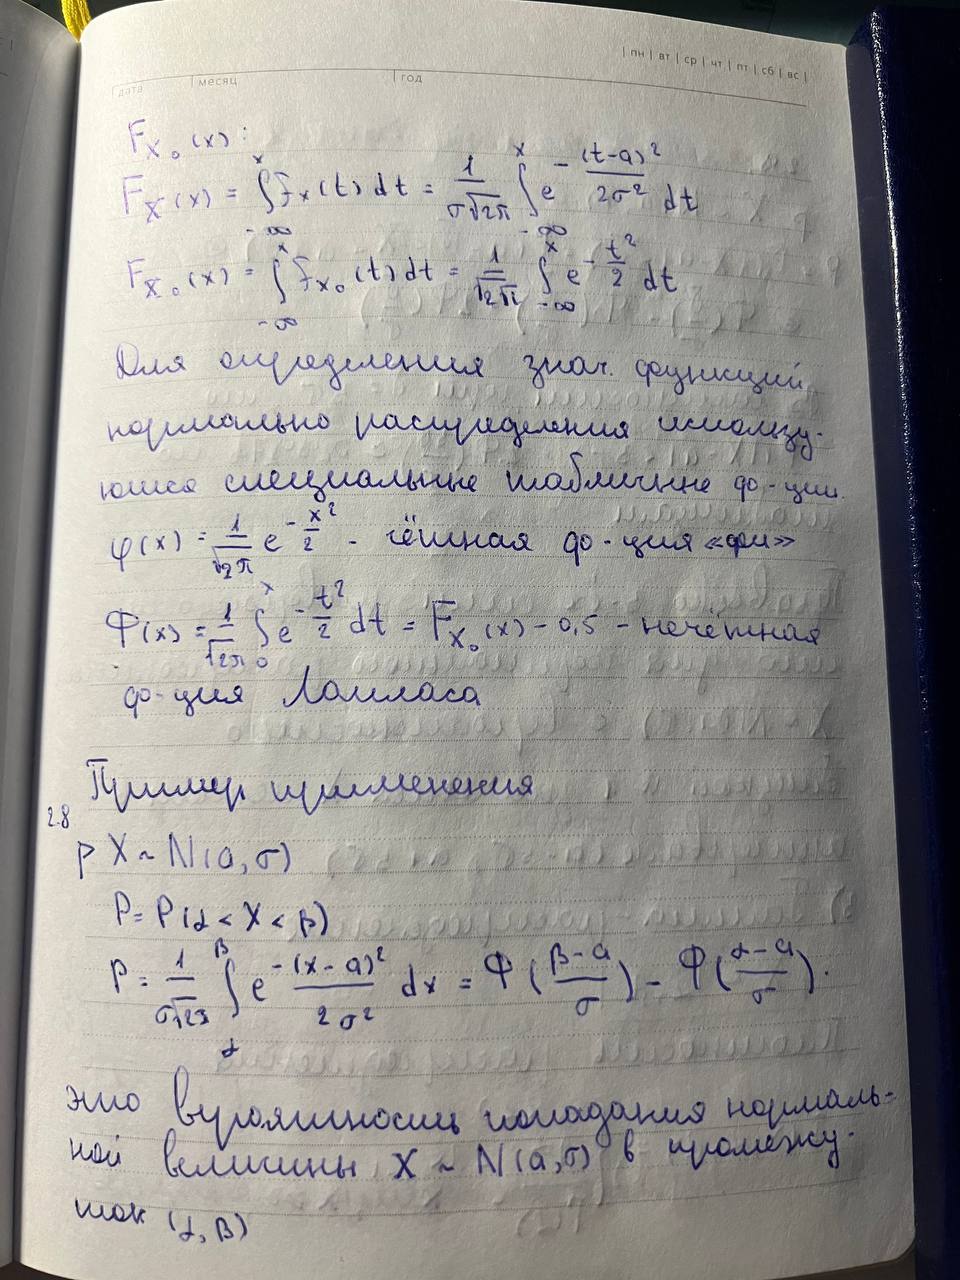 | пн | вт | ср | чт | пт | сб | вс |
дата | месяц | год
F_{X_0}(x):
F_X(x) = ∫_{-∞}^{x} f_X(t) dt = \frac{1}{σ√2π} ∫_{-∞}^{x} e^{-\frac{(t-a)^2}{2σ^2}} dt
F_{X_0}(x) = ∫_{-∞}^{x} f_{X_0}(t) dt = \frac{1}{√2π} ∫_{-∞}^{x} e^{-\frac{t^2}{2}} dt
Для определения знач. функций
нормально распределения использу-
ются специальные табличные ф-ции.
φ(x) = \frac{1}{√2π} e^{-\frac{x^2}{2}} - чётная ф-ция «фи»
Φ(x) = \frac{1}{√2π} ∫_{0}^{x} e^{-\frac{t^2}{2}} dt = F_{X_0}(x) - 0,5 - нечётная
ф-ция Лапласа
Пример применения
2.8
р X ~ N(a, σ)
P = P(α < X < β)
P = \frac{1}{σ√2π} ∫_{α}^{β} e^{-\frac{(x-a)^2}{2σ^2}} dx = Φ(\frac{β-a}{σ}) - Φ(\frac{α-a}{σ}).
это вероятность попадания нормаль-
ной величины X ~ N(a, σ) в промежу-
ток (α, β)